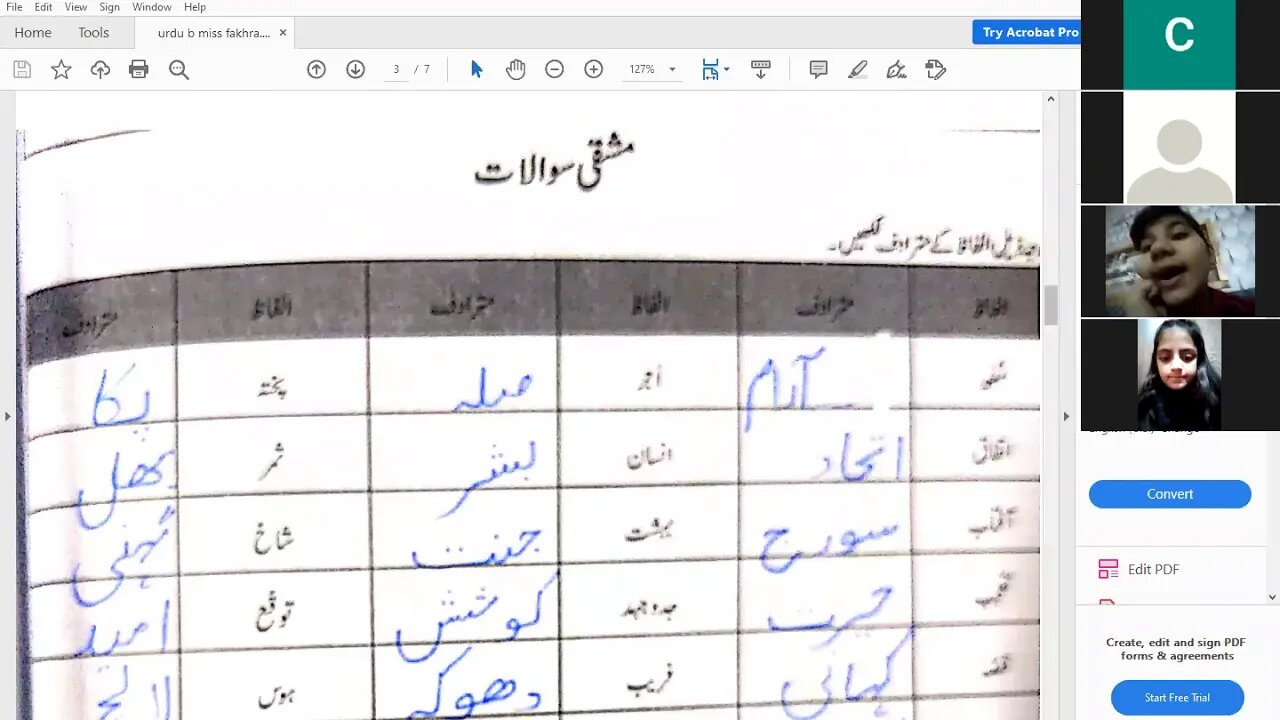 File Edit View Sign Window Help
Home Tools urdu b miss fakhra.... × Try Acrobat Pro
3 / 7 127%
C
مشقی سوالات
الفاظ کے مترادف لکھیں۔
الفاظ مترادف الفاظ مترادف الفاظ مترادف
سکھ آرام اجر صلہ پختہ پکا
اتفاق اتحاد انسان بشر ثمر پھل
آفتاب سورج بہشت جنت شاخ ٹہنی
تعجب حیرت جدوجہد کوشش توقع امید
قصہ کہانی فریب دھوکہ ہوس لالچ
Convert
Edit PDF
Create, edit and sign PDF
forms & agreements
Start Free Trial